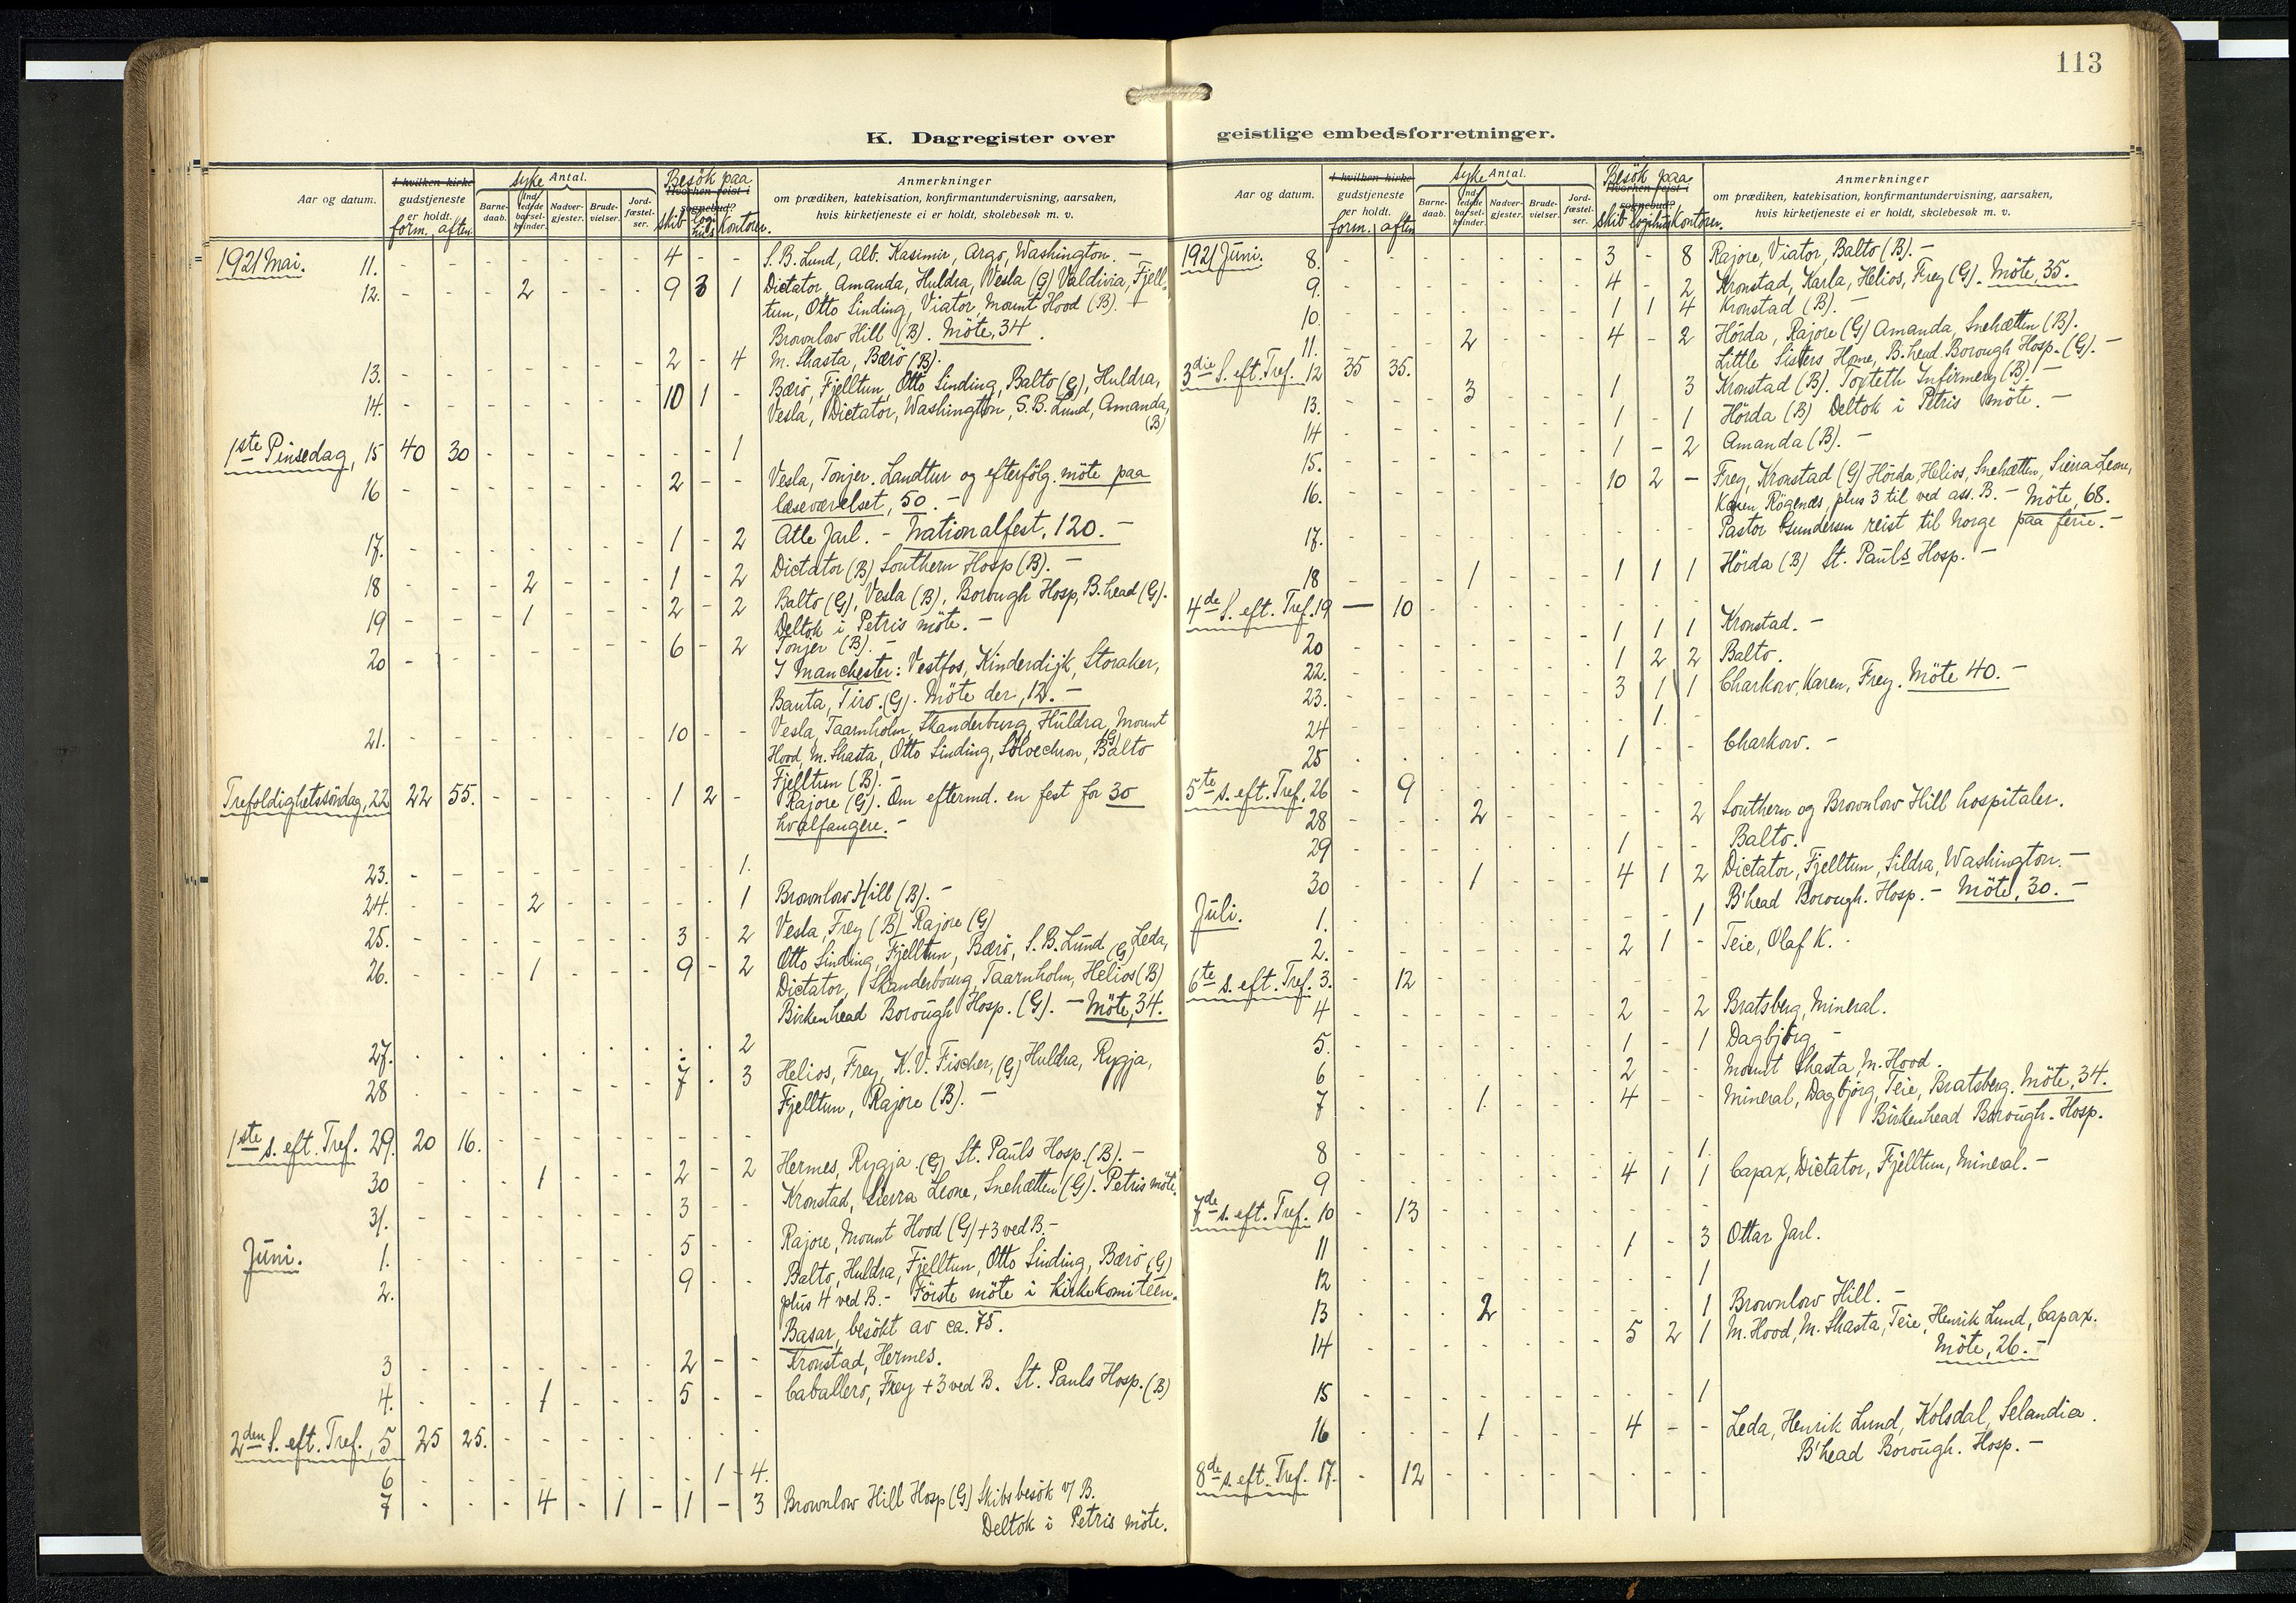 113
K. Dagregister over
geistlige embedsforretninger.
Aar og datum.
I hvilken kirke
gudstjeneste
er holdt.
form. aften
syke Antal.
Barne-
daab.
Ind-
ledede
barsel-
kvinder.
Nadver-
gjester.
Brude-
vielser.
Jord-
fæstel-
ser.
Besök paa
Hvorhen reist i
sognebud?
skib logihus kontoret.
Anmerkninger
om prædiken, katekisation, konfirmantundervisning, aarsaken,
hvis kirketjeneste ei er holdt, skolebesøk m. v.
1921 Mai. 11. - - - - - - - 4 - - S. B. Lund, Alb. Kasimir, Argo, Washington. -
12. - - - 2 - - - 9 3 1 Dictator, Amanda, Huldra, Vesla (G) Valdivia, Fjell-
tun, Otto Sinding, Viator, Mount Hood (B). -
Brownlow Hill (B). Möte, 34.
13. - - - - - - - 2 - 4 M. Shasta, Bærö (B).
14. - - - - - - - 10 1 - Bærö, Fjelltun, Otto Sinding, Balto (G), Huldra,
Vesla, Dictator, Washington, S. B. Lund, Amanda,
(B)
1ste Pinsedag, 15 40 30 - - - - - - - 1
16 - - - - - - - 2 - - Vesla, Tonjer. Landtur og efterfölg. möte paa
læseværelset, 50. -
17. - - - - - - - 1 - 2 Atle Jarl. - Nationalfest, 120. -
18 - - - 2 - - - 1 - 2 Dictator (B) Southern Hosp (B). -
19 - - - 1 - - - 2 - 2 Balto (G), Vesla (B), Borough Hosp, B.head (G).
Deltok i Petris möte. -
20 - - - - - - - 6 - 2 Tonjer (B). -
I Manchester: Vestfos, Kinderdijk, Storaker,
Bauta, Tiro. (G). Möte der, 12. -
21. - - - - - - - 10 - - Vesla, Taarnholm, Skanderburg, Huldra, Mount
Hood, M. Shasta, Otto Sinding, (G) Balto
Fjelltun (B). -
Trefoldighetssöndag, 22 22 55. - - - - - 1 2 - Rajore (G). Om eftermd. en fest for 30
hvalfangere. -
23. - - - - - - - - - 1.
24. - - - 2 - - - - - 1 Brownlow Hill (B). -
25. - - - - - - - 3 - 2 Vesla, Frey (B) Rajore (G)
26. - - - 1 - - - 9 - 2 Otto Sinding, Fjelltun, Bærö, S. B. Lund (G) Leda,
Dictator, Skanderbourg, Taarnholm, Helios (B)
Birkenhead Borough Hosp. (G). - Möte, 34.
27. - - - - - - - - - 2
28 - - - - - - - 7 - 3 Helios, Frey, K. V. Fischer, (G) Huldra, Rygja,
Fjelltun, Rajore (B). -
1ste s. eft. Tref. 29. 20 16. - - - - - - - -
30 - - - 1 - - - 2 - 2 Hermes, Rygja (G) St. Pauls Hosp. (B). -
31. - - - - - - - 3 - - Kronstad, Sierra Leone, Snehætten (G). Petris möte.
Juni. 1. 5 - - Rajore, Mount Hood (G) + 3 ved B. -
2. 9 - - Balto, Huldra, Fjelltun, Otto Sinding, Bærö (G)
plus 4 ved B. - Förste möte i kirkekomiteen.
Basar, besökt av ca. 75.
3 - - - - - - - 2 - - Kronstad, Hermes.
4. - - - 1 - - - 5 - - Caballero, Frey + 3 ved B. St. Pauls Hosp. (B)
2den S. eft. Tref. 5 25 25. - - - - - - - -
6 - - - - - - - - 1 4.
7 - - - 4 - 1 - 1 - 3 Brownlow Hill Hosp (G) Skibsbesök v/ B.
Deltok i Petris möte.
Aar og datum.
I hvilken kirke
gudstjeneste
er holdt.
form. aften
syke Antal.
Barne-
daab.
Ind-
ledede
barsel-
kvinder.
Nadver-
gjester.
Brude-
vielser.
Jord-
fæstel-
ser.
Besök paa
Hvorhen reist i
sognebud?
skib logihus kontoret.
Anmerkninger
om prædiken, katekisation, konfirmantundervisning, aarsaken,
hvis kirketjeneste ei er holdt, skolebesøk m. v.
1921 Juni. 8. - - - - - - - 3 - 8 Rajore, Viator, Balto (B). -
9. - - - - - - - 4 - 2 Kronstad, Karla, Helios, Frey (G). Möte, 35.
10. - - - - - - - 1 1 4 Kronstad (B). -
11. - - - 2 - - - 4 - 2 Hörda, Rajore (G) Amanda, Snehætten (B).
Little Sisters Home, B.head. Borough Hosp. (G). -
3die S. eft. Tref. 12 35 35.
13. - - - 3 - - - 1 3 Kronstad (B). Toxteth Infirmery (B). -
14 - - - - - - - 1 - 1 Hörda (B) Deltok i Petris möte. -
15. - - - - - - - 1 - 2 Amanda (B). -
16. - - - - - - - 10 2 - Frey, Kronstad (G) Hörda, Helios, Snehætten, Sierra Leone,
Karen, Rögenæs, plus 3 til ved ass. B. - Möte, 68.
17. - - - - - - - - - Pastor Gundersen reist til Norge paa ferie. -
18 - - - 1 - - - 1 1 1 Hörda (B) St. Pauls Hosp. -
4de S. eft. Tref. 19 — 10 - - - - - - - -
20 - - - - - - - 1 1 1 Kronstad. -
22. - - - - - - - 1 2 2 Balto.
23. - - - - - - - 3 1 1 Charkow, Karen, Frey. Möte 40. -
24 - - - - - - - - 1. -
25 - - - - - - - 1 - - Charkow. -
5te s. eft. Tref. 26 - 9 - - - - - - - -
28 - - - 2 - - - - - 2 Southern og Brownlow Hill hospitaler.
29 - - - - - - - 1 - - Balto.
30 - - - 1 - - - 4 1 2 Dictator, Fjelltun, Sildra, Washington. -
B'head Borough. Hosp. - Möte, 30. -
Juli. 1. - - - - - - - - - 1
2. - - - - - - - 2 1 - Teie, Olaf K. -
6te s. eft. Tref. 3. - 12 - - - - - - - -
4 - - - - - - - 2 - 2 Bratsberg, Mineral.
5. - - - - - - - 1 - 1 Dagbjörg -
6 - - - - - - - 2 - - Mount Shasta, M. Hood.
7 - - - 1. - - - 4 - - Mineral, Dagbjörg, Teie, Bratsberg. Möte, 34.
Birkenhead Borough. Hosp.
8 - - - - - - - - - 1.
9 - - - - - - - 4 1 1 Capax, Dictator, Fjelltun, Mineral. -
7de s. eft. Tref. 10 - 13 - - - - - - - -
11 - - - - - - - 1 - 3 Ottar Jarl.
12 - - - - - - - - - 1
13 - - - 2 - - - - - 1 Brownlow Hill. -
14 - - - - - - - 5 2 1 M. Hood, M. Shasta, Teie, Henrik Lund, Capax.
Möte, 26. -
15 - - - - - - - - - 1
16 - - - 1 - - - 4 - - Leda, Henrik Lund, Kolsdal, Selandia.
B'head Borough. Hosp. -
8de s. eft. Tref. 17. - 12 - - - - - - - -